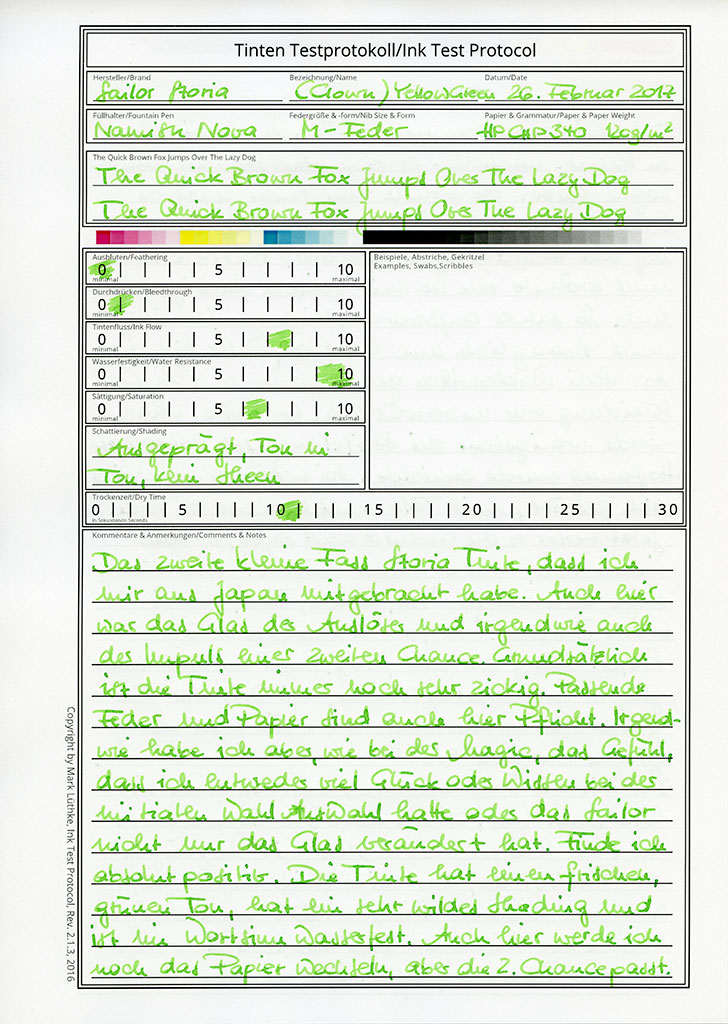 Tinten Testprotokoll/Ink Test Protocol
Hersteller/Brand Bezeichnung/Name Datum/Date
Sailor Storia (Clown) YellowGreen 26. Februar 2017
Füllhalter/Fountain Pen Federgröße & -form/Nib Size & Form Papier & Grammatur/Paper & Paper Weight
Namisu Nova M-Feder HP CHP340 120g/m²
The Quick Brown Fox Jumps Over The Lazy Dog
The Quick Brown Fox Jumps Over The Lazy Dog
The Quick Brown Fox Jumps Over The Lazy Dog
Ausbluten/Feathering
0 5 10
minimal maximal
Durchdrücken/Bleedthrough
0 5 10
minimal maximal
Tintenfluss/Ink Flow
0 5 10
minimal maximal
Wasserfestigkeit/Water Resistance
0 5 10
minimal maximal
Sättigung/Saturation
0 5 10
minimal maximal
Schattierung/Shading
Ausgeprägt, Ton in
Ton, kein Sheen
Beispiele, Abstriche, Gekritzel
Examples, Swabs,Scribbles
Trockenzeit/Dry Time
0 5 10 15 20 25 30
in Sekunden/in Seconds
Kommentare & Anmerkungen/Comments & Notes
Das zweite kleine Fass Storia Tinte, dass ich
mir aus Japan mitgebracht habe. Auch hier
war das Glas der Auslöser und irgendwie auch
der Impuls einer zweiten Chance. Grundsätzlich
ist die Tinte immer noch sehr zickig. Passende
Feder und Papier sind auch hier Pflicht. Irgend-
wie habe ich aber, wie bei der Magic, das Gefühl,
dass ich entweder viel Glück oder Wissen bei der
initialen Wahl Auswahl hatte oder das Sailor
nicht nur das Glas verändert hat. Finde ich
absolut positiv. Die Tinte hat einen frischen,
grünen Ton, hat ein sehr wildes Shading und
ist im Wortsinn Wasserfest. Auch hier werde ich
noch das Papier wechseln, aber die 2. Chance passt.
Copyright by Mark Lüthke, Ink Test Protocol, Rev. 2.1.3, 2016